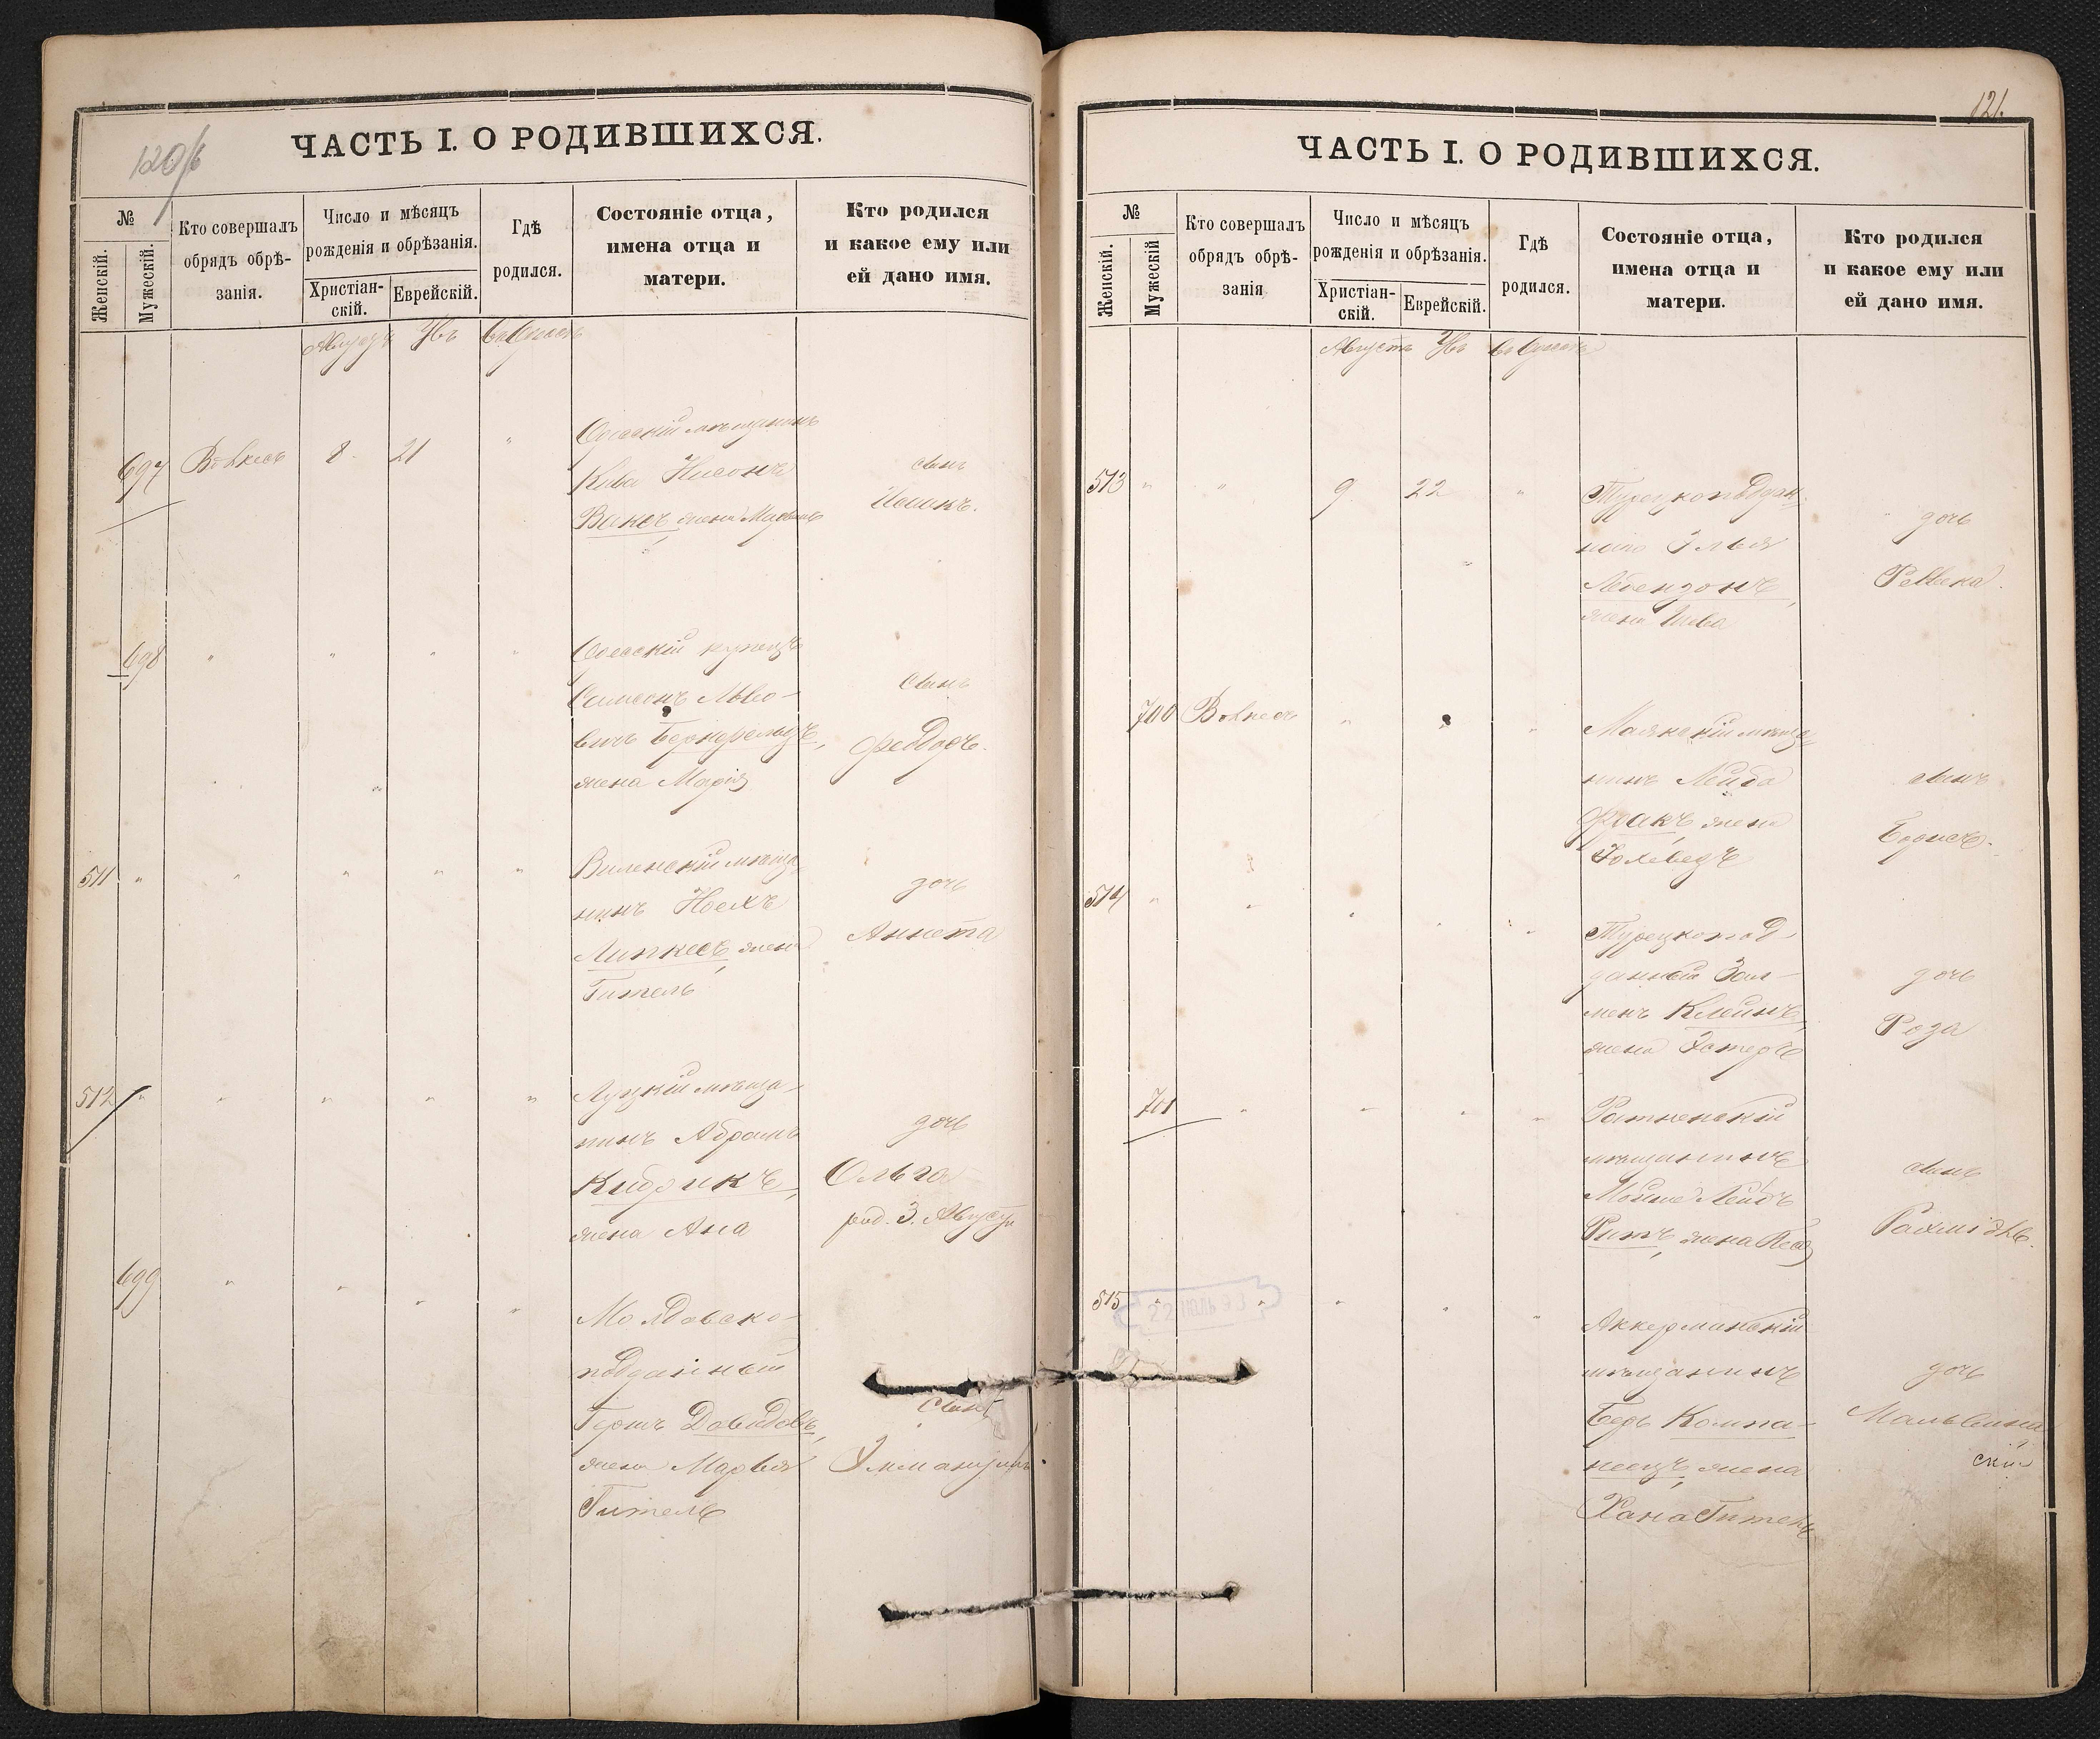 120/б
ЧАСТЬ I. О РОДИВШИХСЯ.
№
Женскій.
Мужескій.
Кто совершалъ
обрядъ обрѣ-
занія.
Число и мѣсяцъ
рожденія и обрѣзанія.
Христіан-
скій.
Еврейскій.
Гдѣ
родился.
Состояніе отца,
имена отца и
матери.
Кто родился
и какое ему или
ей дано имя.
Августъ Увъ въ Одессѣ
697 Вовкесъ 8 21 "
Одесскій мѣщанинъ
Кива Нисонъ
Ваксъ, жена
сынъ
698 " " " "
Одесскій купецъ
Самсонъ Льво-
вичъ Бернфельдъ,
жена Марія
сынъ
Феддоръ.
511 " " " " "
Виленскій мѣща-
нинъ Ноехъ
Липкесъ, жена
Гитель
дочь
Аннета
512 " " " " "
Луцкій мѣща-
нинъ Абрамъ
Кидрикъ,
жена Ана
дочь
Ольга
род. 3. Августа
699 " " " "
Молдавско-
подданный
Гершъ Давидовъ,
жена Марьея
Гитель
сынъ
Эммануилъ.
121.
ЧАСТЬ I. О РОДИВШИХСЯ.
№
Женскій.
Мужескій
Кто совершалъ
обрядъ обрѣ-
занія
Число и мѣсяцъ
рожденія и обрѣзанія.
Христіан-
скій.
Еврейскій.
Гдѣ
родился.
Состояніе отца,
имена отца и
матери.
Кто родился
и какое ему или
ей дано имя.
Августъ Увъ въ Одессѣ
513 " " 9 22 "
Турецкоподдан-
жена Шева
дочь
Ревека.
700 Вовкесъ " " "
Маякскій мѣща-
нинъ Лейба
Фракъ, жена
сынъ
Борисъ.
514 " " " " "
Турецкопод-
данный Зал-
менъ Клейнъ,
жена Эстеръ
дочь
Роза
701 " " " "
Ратненскій
мѣщанинъ
Мойше Лейбъ
Ритъ, жена
сынъ
515 " " " " "
22 ІЮЛЬ 93
Аккерманскій
мѣщанинъ
Беръ Компа-
неецъ, жена
Хана Гитель
дочь
Мальвина